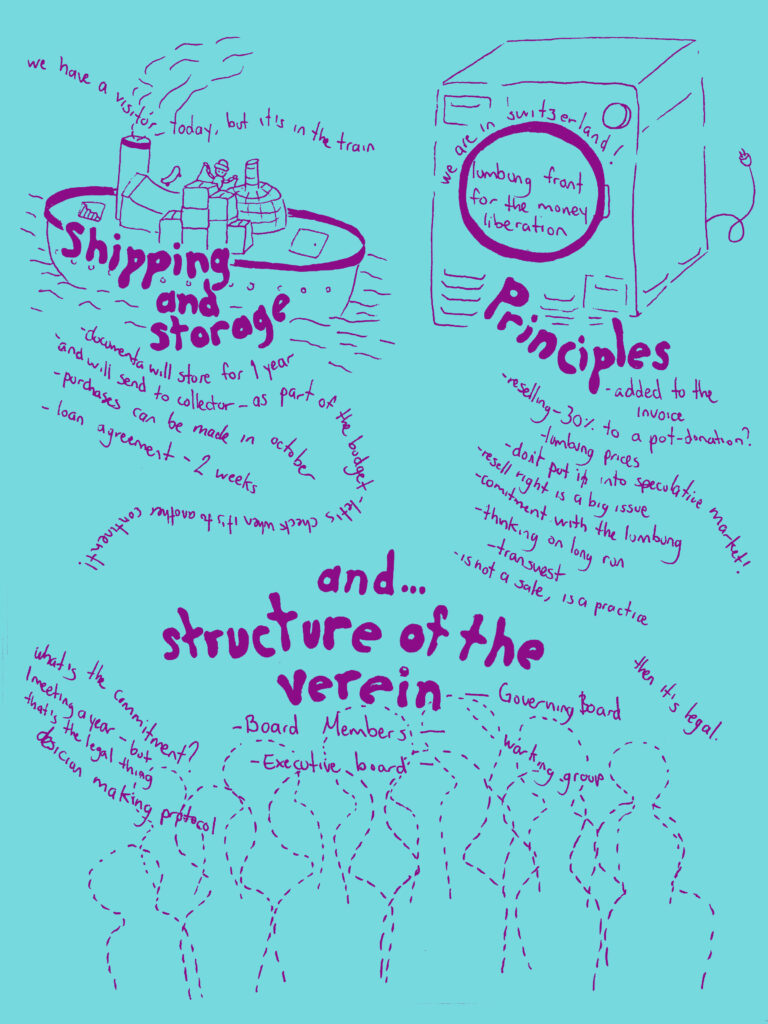 we have a visitor today, but it's in the train
Shipping
and
storage
-documenta will store for 1 year
and will send to collector - as part of the budget - let's check when it's to another continent!!
-purchases can be made in october
- loan agreement - 2 weeks
we are in switzerland!
lumbung front
for the money
liberation
Principles
-added to the
invoice
-reselling - 30% to a pot-donation?
-lumbung prices
-don't put it into speculative market!
-resell right is a big issue
-comitment with the lumbung
-thinking on long run
-transvest
-is not a sale, is a practice
and...
structure of the
verein
what is the commitment?
1 meeting a year - but
that's the legal thing
desicion making protocol
-Board Members -
-Executive board -
- Governing Board
working group
then it's legal.